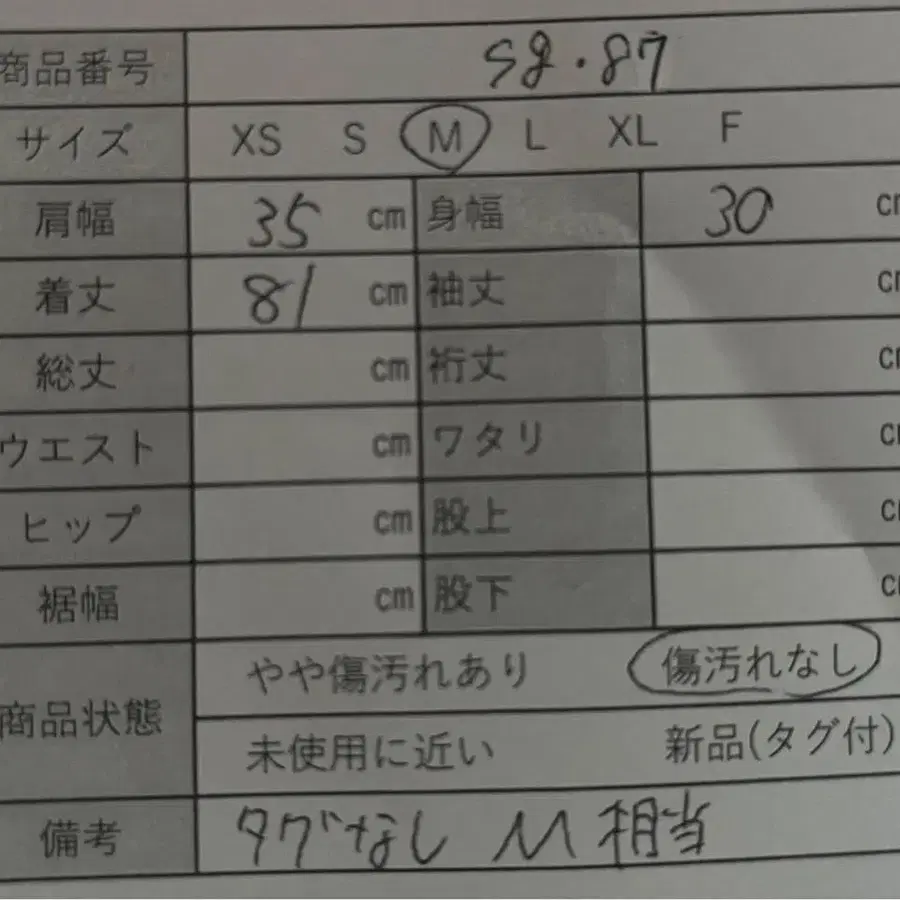 商品番号 S8・87
サイズ XS S M L XL F
肩幅 35 cm 身幅 30 cm
着丈 81 cm 袖丈 cm
総丈 cm 裄丈 cm
ウエスト cm ワタリ cm
ヒップ cm 股上 cm
裾幅 cm 股下 cm
商品状態
やや傷汚れあり 傷汚れなし
未使用に近い 新品(タグ付)
備考 タグなし M 相当